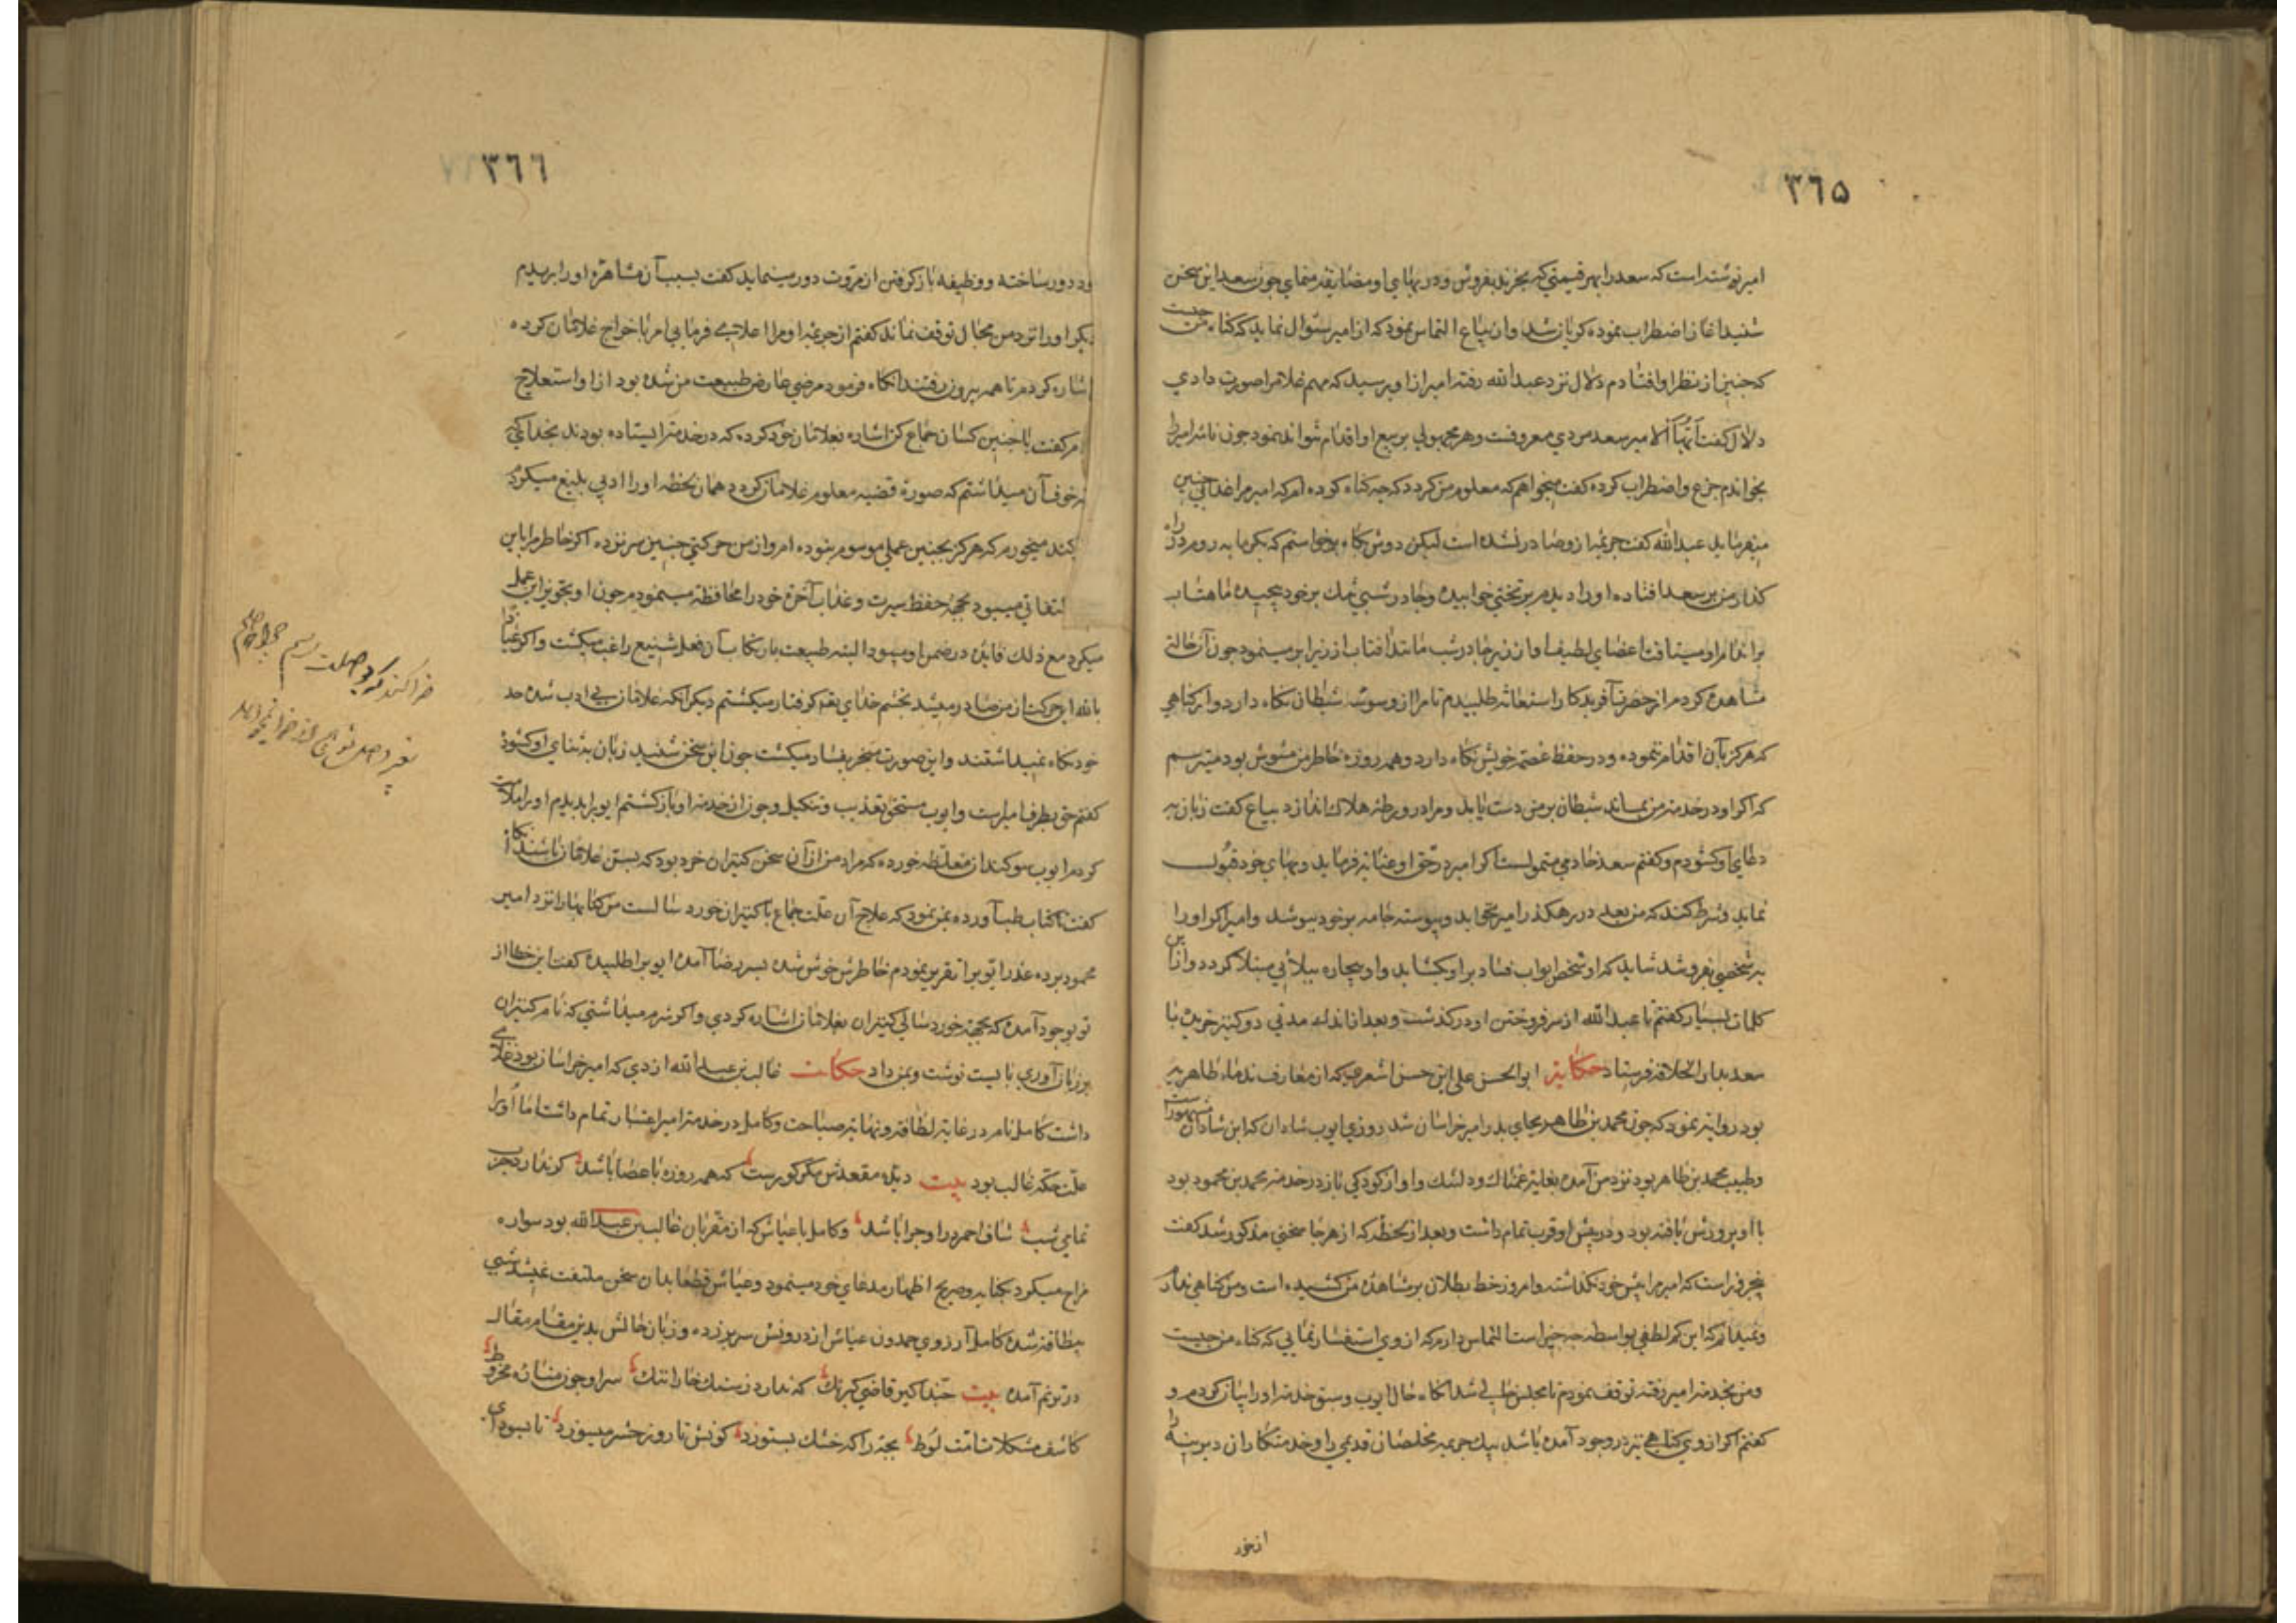 ٣٦٥
امیر نوشته است که سعد را بهر قیمتی که بخرند بفروش و در بهای او مضایقه منمای چون سعد این سخن
شنید اغاز اضطراب نموده کریان شد و ان بیاع التماس نمود که از امیر سئوال نماید که کناه من چیست
که چنین از نظر او افتادم دلال نزد عبدالله رفته امیر از او پرسید که مهم غلام را صورت دادی
دلال کفت ایها الامیر سعد مردی معروفست و هر مجهولی بر بیع او اقدام نتواند نمود چون نامه امیر را
بخواندم جزع و اضطراب کرده کفت میخواهم که معلوم من کردد که چه کناه کرده ام که امیر مرا چنین
میفرماید عبدالله کفت جریمه از وصادر نشده است لیکن دوش بکاه برخواستم که بکرمابه روم در راه
کذار من بر سعد افتاد او را دیدم بر تختی خوابیده و چادر شبی تنک بر خود پیچیده ماهتاب
بر اندام او میتافت اعضای لطیف او از زیر چادر شب مانند افتاب از زیر ابر مینمود چون آن حالت
مشاهده کردم از حضرت آفریدکار استعانه طلبیدم تا مرا از وسوسه شیطان نکاه دارد و از کناهی
که هرکز بآن اقدام ننموده و در حفظ عصمت خویش نکاه دارد و همه روزه خاطر من مشوش بود میترسم
که اکر او در خدمت من بماند شیطان بر من دست یابد و مرا در ورطه هلاک اندازد بیاع کفت زبان به
دعای او کشودم و کفتم سعد خادمی متمولست اکر امیر در حق او عنایت فرماید و بهای خود قبول
نماید و شرط کند که من بعد در رهکذر امیر نخوابد و پیوسته جامه بر خود بپوشد و امیر اکر او را
به شخصی بفروشد شاید که او شخص ابواب فساد بر او بکشاید و او بیچاره ببلائی مبتلا کردد و از این
کلمات بسیار کفتم تا عبدالله از سر فروختن او در کذشت و بعد از اندک مدتی دو کنیز خریده با
سعد بدار الخلافه فرستاد حکایت ابوالحسن علی ابن حسن اشعری که از معارف ندماء طاهریه
بود روایت نمود که چون محمد بن طاهر بجای پدر امیر خراسان شد روزی ایوب شادان که ابن شادان مشهور است
وطبیب محمد بن طاهر بود نزد من آمده بغایت غمناک و دلتنک و او از کودکی باز در خدمت محمد بن محمود بود
با او پرورش یافته بود و در پیش او قرب تمام داشت و بعد از لحظه که از هر جا سخنی مذکور شد کفت
پنج روز است که امیر مرا پیش خود نکذاشته و امروز خط بطلان بر مشاهره من کشیده است و من کناهی ندارم
و نمیدانم که این کم لطفی بواسطه چه چیز است التماس دارم که از وی استفسار نمایی که کناه من چیست
و من بخدمت امیر رفته توقف نمودم تا مجلس خالی شد انکاه حال ایوب و سبق خدمت او را بیان کردم و
کفتم اکر از وی کناهی نیز در وجود آمده باشد بیک جریمه مخلصان قدیمی را و خدمتکاران دیرینه را
از خود
٣٦٦
دور ساخته و وظیفه باز کرفتن از مروت دور مینماید کفت بسبب آن مشاهره او را بریدم
دیکر او را نزد من مجال توقف نماند کفتم از جریمه او مرا اعلامی فرمایی امر باخراج غلامان کرده
اشاره کردم تا همه بیرون رفتند انکاه فرمود مرضی عارض طبیعت من شده بود از او استعلاج
کفت با چنین کسان جماع کن اشاره بغلامان خود کرده که در خدمت ایستاده بودند بخدای که
خوف آن میداشتم که صورة قضیه معلوم غلامان کردد همان لحظه او را ادبی بلیغ میکردم
کند میخورم که هرکز بچنین عملی موسوم نبوده ام و از من حرکتی چنین سر نزده اکر خاطر مرا باین
التفاتی میبود بجهة حفظ سیرت و عذاب آخرة خود را محافظت مینمودم چون او بتجویز این عمل
میکرد مع ذلک فایده در ضمن او میبود البته طبیعت بارتکاب آن فعل شنیع راغب میکشت و اکر عیاذا
بالله این حرکت از من صادر میشد بخشم خدای تعه کرفتار میکشتم دیکر انکه غلامان بی ادب شده حد
خود نکاه نمیداشتند و این صورت منجر بفساد میکشت چون این سخن شنید زبان به ثنای او کشود
کفتم حق بطرف امیر است و ایوب مستحق تعذیب و تنکیل و چون از خدمت او باز کشتم ایوب را بدیدم او را ملامت
کردم ایوب سوکندان مغلظه خورد که مراد من از آن سخن کنیزان خرد بود که بسن غلامان باشند انکاه
کفت تا کتاب طب آورده بمن نمود که علاج آن علت جماع با کنیزان خورد سالست من کتابها را نزد امیر
محمود برده عذر ایوب را تقریر نمودم خاطرش خوش شده بسر رضا آمده ایوب را طلبیده کفت این خطا از
تو بوجود آمده که بجهة خورد سالی کنیزان بغلامان اشاره کردی و اکر شرم میداشتی که نام کنیزان
بر زبان آوری بایست نوشت و بمن داد حکایت غالب بن عبدالله ازدی که امیر خراسان بود غلامی
داشت کامل نام در غایت لطافت و نهایت صباحت و کامل در خدمت امیر اعتبار تمام داشت اما او را
علت حکه غالب بود بیت دیده مقعدش مکر کورست که همه روزه با عصا باشد کر ندارد جرب
تمامی شب شاف احمر در او چرا باشد و کامل با عیاش که از مقربان غالب بن عبدالله بود سواره
مزاح میکرد بکنایه و صریح اظهار مدعای خود مینمود و عیاش قطعا بدان سخن ملتفت نمیشد شبی
بیطاقت شده کامل آرزوی حمدون عیاش از درونش سر بر زده و زبان حالش بدین مقام مقال
در ترنم آمده بیت حبذا کیر قاضی کیرنک که ندارد ز سنک خارا ننک سر او چون مناره مخروط
کاشف مشکلات امت لوط بچه را که خشک بسپوزد کونش تا روز حشر میسوزد تا ببودی